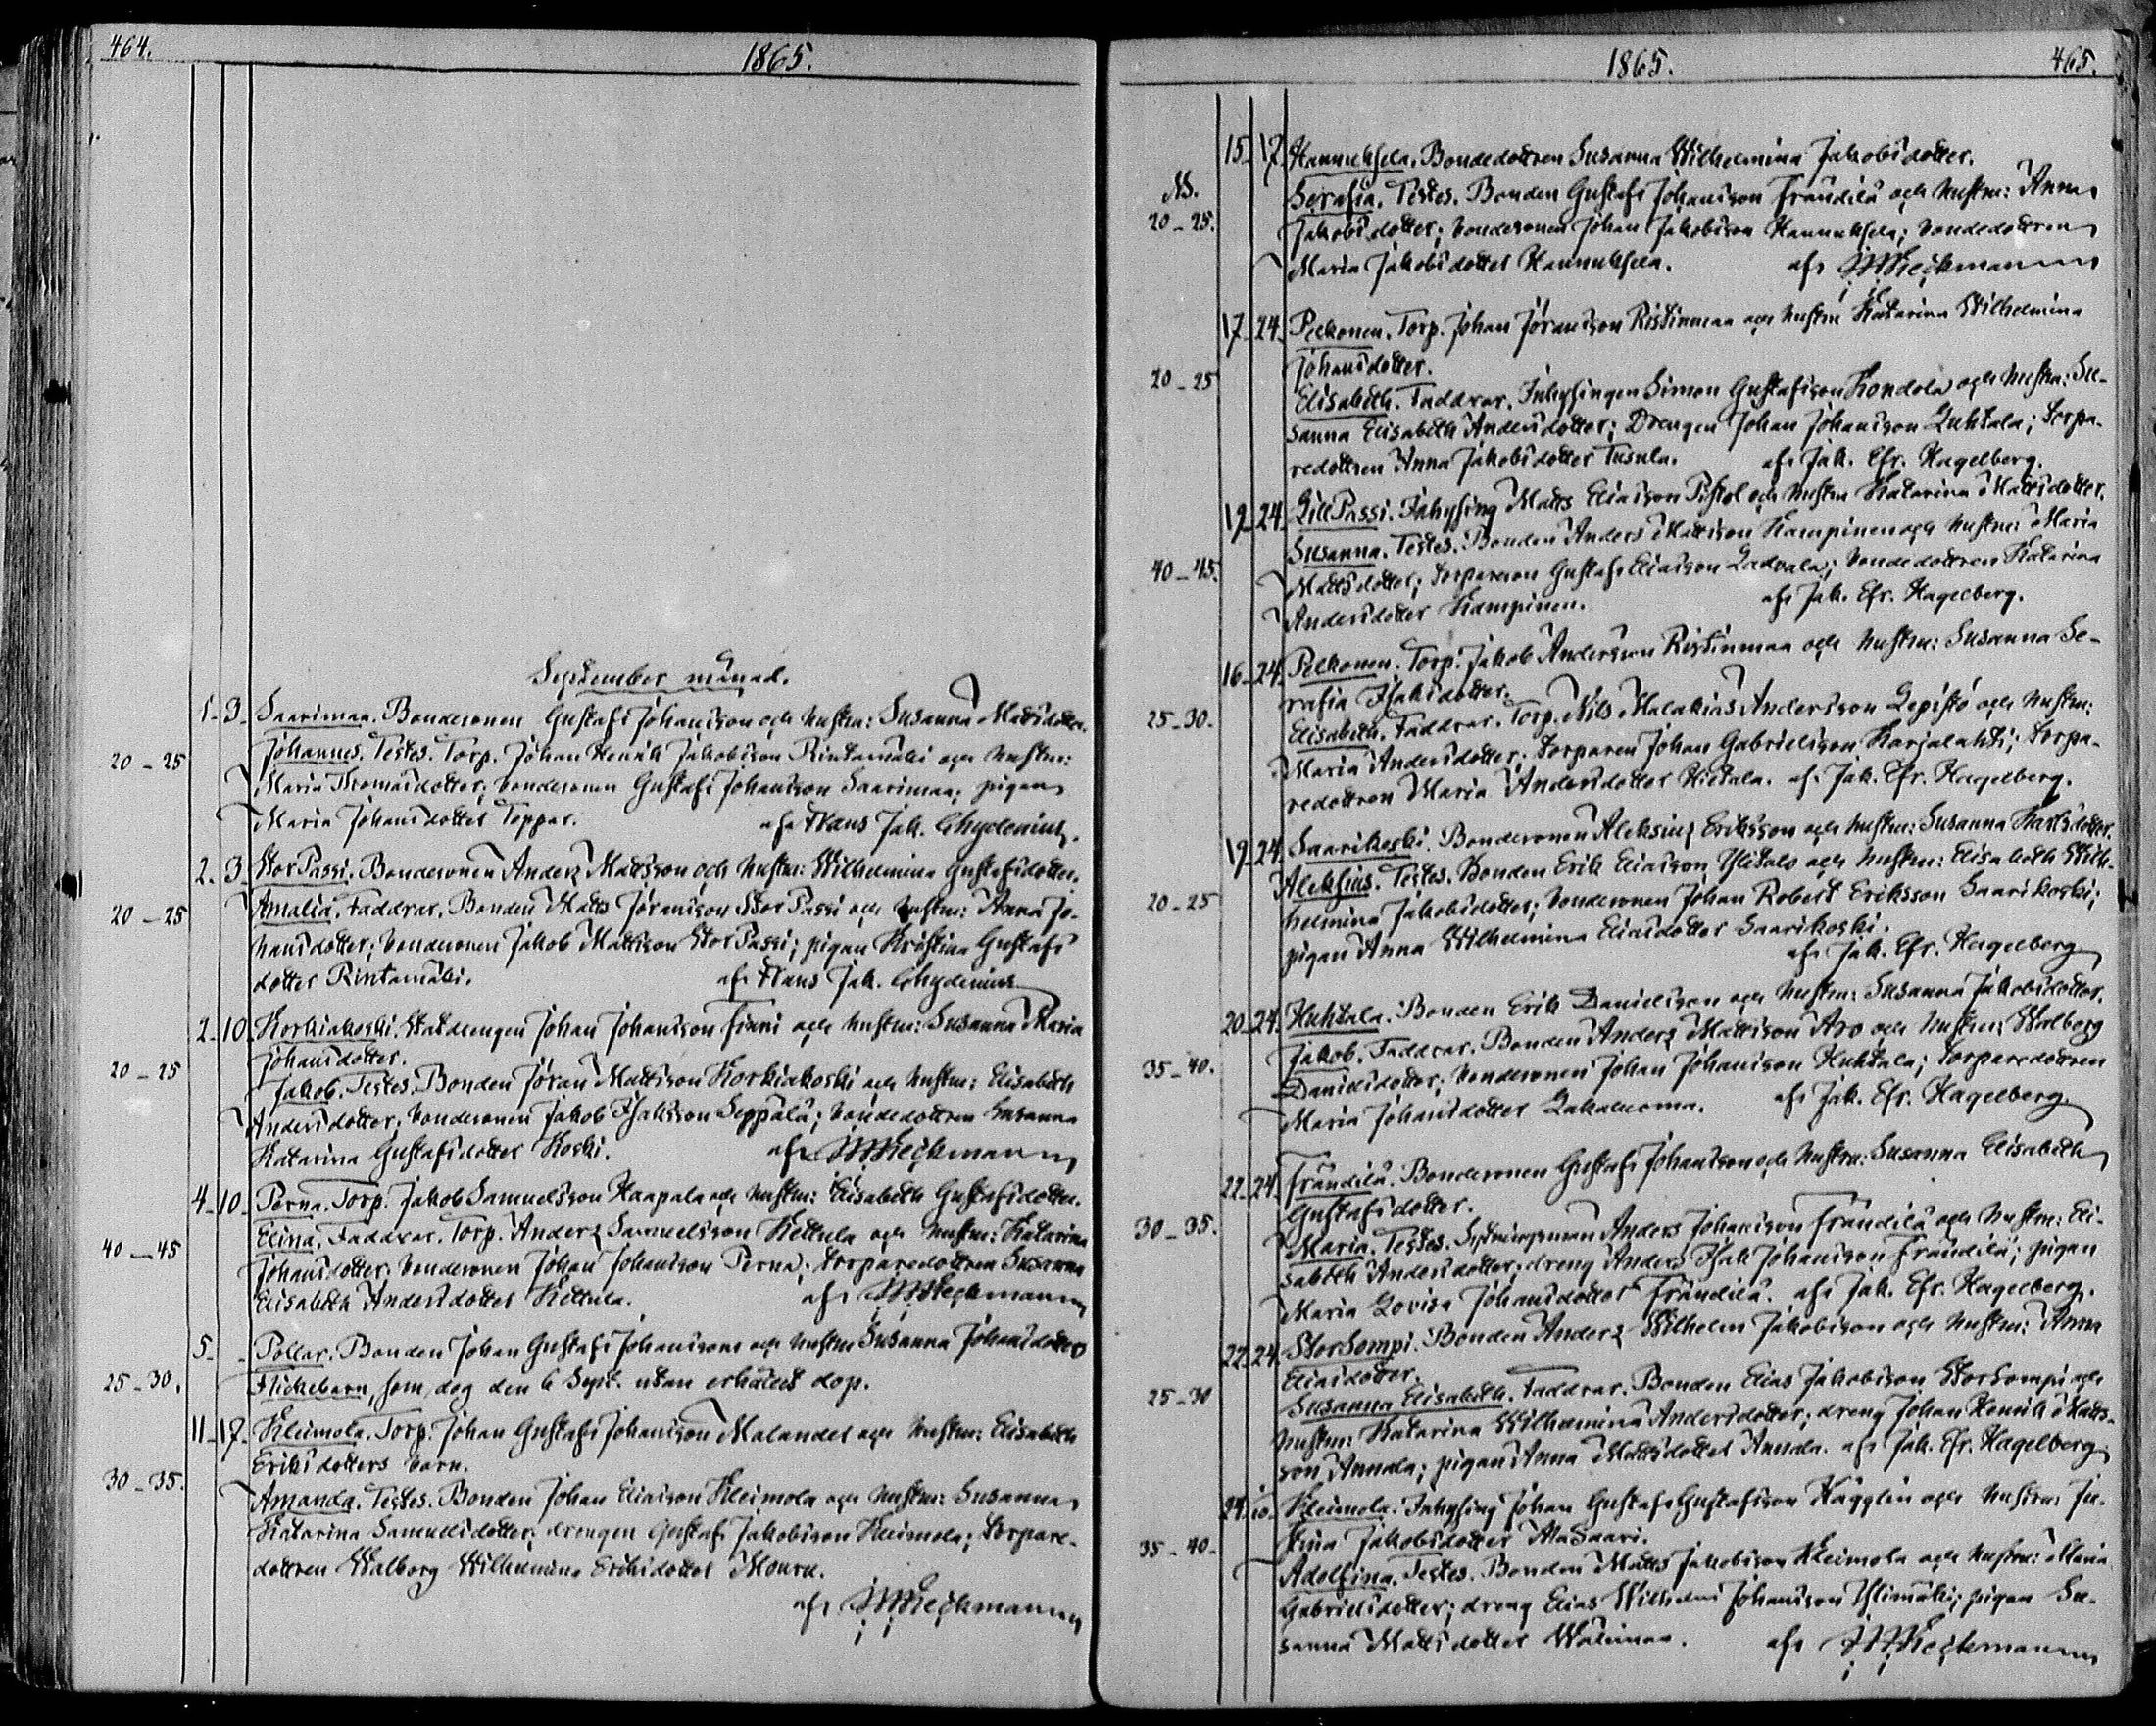 464.
1865.
September månad.
1. 3. Saarimaa. Bondesonen Gustaf Johansson och hustru: Susanna Mattsdotter.
20 – 25 Johannes. Testes. Torp. Johan Henrik Jakobsson Rintamäki och hustru:
Maria Thomasdotter; bondesonen Gustaf Johansson Saarimaa; pigan
Maria Johansdotter Toppar. af Frans Jak. Chydenius.
2. 3. Stor Passi. Bondesonen Anders Mattsson och hustru: Wilhelmina Gustafsdotter.
20 – 25 Amalia. Faddrar. Bonden Matts Jöransson Stor Passi och hustru: Anna Jo-
hansdotter; bondesonen Jakob Mattsson Stor Passi; pigan Kristina Gustafs
dotter Rintamäki. af Frans Jak. Chydenius
2. 10. Korkiakoski. Statdrengen Johan Johansson Finni och hustru: Susanna Maria
Johansdotter.
20 – 25 Jakob. Testes. Bonden Jöran Mattsson Korkiakoski och hustru: Elisabeth
Andersdotter; bondesonen Jakob Isaksson Seppälä; bondedottren Susanna
Katarina Gustafsdotter Koski. af Heckmann
4. 10. Perna. Torp. Jakob Samuelsson Haapala och hustru: Elisabeth Gustafsdotter.
40 – 45 Elina. Faddrar. Torp. Anders Samuelsson Kettula och hustru: Katarina
Johansdotter; bondesonen Johan Johansson Perna; torparedottren Susanna
Elisabeth Andersdotter Kettula. af Heckmann
5. Pollar. Bonden Johan Gustaf Johanssons och hustru Susanna Johansdotters
25 – 30. Flickebarn, som dog den 6 Sept. utan erhållet dop.
11. 17. Kleimola. Torp. Johan Gustaf Johansson Malander och hustru: Elisabeth
Eriksdotters barn.
30 – 35. Amanda. Testes. Bonden Johan Eliasson Kleimola och hustru: Susanna
Katarina Samuelsdotter; drengen Gustaf Jakobsson Kleimola; torpare-
dottren Walborg Wilhelmina Eriksdotter
af Heckmann
1865.
465.
15. 17. Hannuksela. Bondedottren Susanna Wilhelmina Jakobsdotter.
20 – 25. Serafia. Testes. Bonden Gustaf Johansson Frändilä och hustru: Anna
Jakobsdotter; bondesonen Johan Jakobsson Hannuksela; bondedottren
Maria Jakobsdotter Hannuksela. af Heckmann
17. 24. Pelkonen. Torp. Johan Jöransson Ristinmaa och hustru Katarina Wilhelmina
Johansdotter.
20 – 25 Elisabeth. Faddrar. Inhysingen Simon Gustafsson Kondola och hustru: Su-
sanna Elisabeth Andersdotter; Drengen Johan Johansson Luhtala; torpa-
redottren Anna Jakobsdotter Tusula. af Jak. Efr. Hagelberg.
19. 24. Lill Passi. Inhysing Matts Eliasson Pistol och hustru Katarina Mattsdotter.
40 – 45. Susanna. Testes. Bonden Anders Mattsson Kampinen och hustru: Maria
Mattsdotter; torpareson Gustaf Eliasson Ladvala; bondedottren Katarina
Andersdotter Kampinen. af Jak. Efr. Hagelberg.
16. 24. Pelkonen. Torp. Jakob Andersson Ristinmaa och hustru: Susanna Se-
rafia Isaksdotter.
25 – 30. Elisabeth. Faddrar. Torp. Nils Malakias Andersson Lepistö och hustru:
Maria Andersdotter; torparen Johan Gabrielsson Karjalahti; torpa-
redottren Maria Andersdotter Hietala. af Jak. Efr. Hagelberg.
19. 24. Saarikoski. Bondesonen Aleksius Eriksson och hustru: Susanna Karlsdotter.
20 – 25 Aleksius. Testes. Bonden Erik Eliasson Ylitalo och hustru: Elisabeth Wil-
helmina Jakobsdotter; bondesonen Johan Robert Eriksson Saarikoski;
pigan Anna Wilhelmina Eliasdotter Saarikoski.
af Jak. Efr. Hagelberg
20. 24. Huhtala. Bonden Erik Danielsson och hustru: Susanna Jakobsdotter.
35 – 40. Jakob. Faddrar. Bonden Anders Mattsson Aro och hustru: Walborg
Danielsdotter; bondesonen Johan Johansson Huhtala; torparedottren
Maria Johansdotter Lakaluoma. af Jak. Efr. Hagelberg
22. 24. Frändilä. Bondesonen Gustaf Johansson och hustru: Susanna Elisabeth
Gustafsdotter.
30 – 35. Maria. Testes. Anders Johansson Frändilä och hustru: Eli-
sabeth Andersdotter; dreng Anders Isak Johansson Frändilä; pigan
Maria Lovisa Johansdotter Frändilä. af Jak. Efr. Hagelberg.
22. 24. Stor Sompi. Bonden Anders Wilhelm Jakobsson och hustru: Anna
Eliasdotter.
25 – 30 Susanna Elisabeth. Faddrar. Bonden Elias Jakobsson Stor Sompi och
hustru: Katarina Wilhelmina Andersdotter; dreng Johan Henrik Matts-
son Annala; pigan Anna Mattsdotter Annala. af Jak. Efr. Hagelberg
24. Kleimola. Inhysing Johan Gustaf Gustafsson Hägglin och hustru: Ju-
stina Jakobsdotter AlaSaari.
35 – 40. Adolfina. Testes. Bonden Matts Jakobsson Kleimola och hustru: Maria
Gabrielsdotter; dreng Elias Wilhelm Johansson Ylimäki; pigan Su-
sanna Mattsdotter Wälimaa. af Heckmann